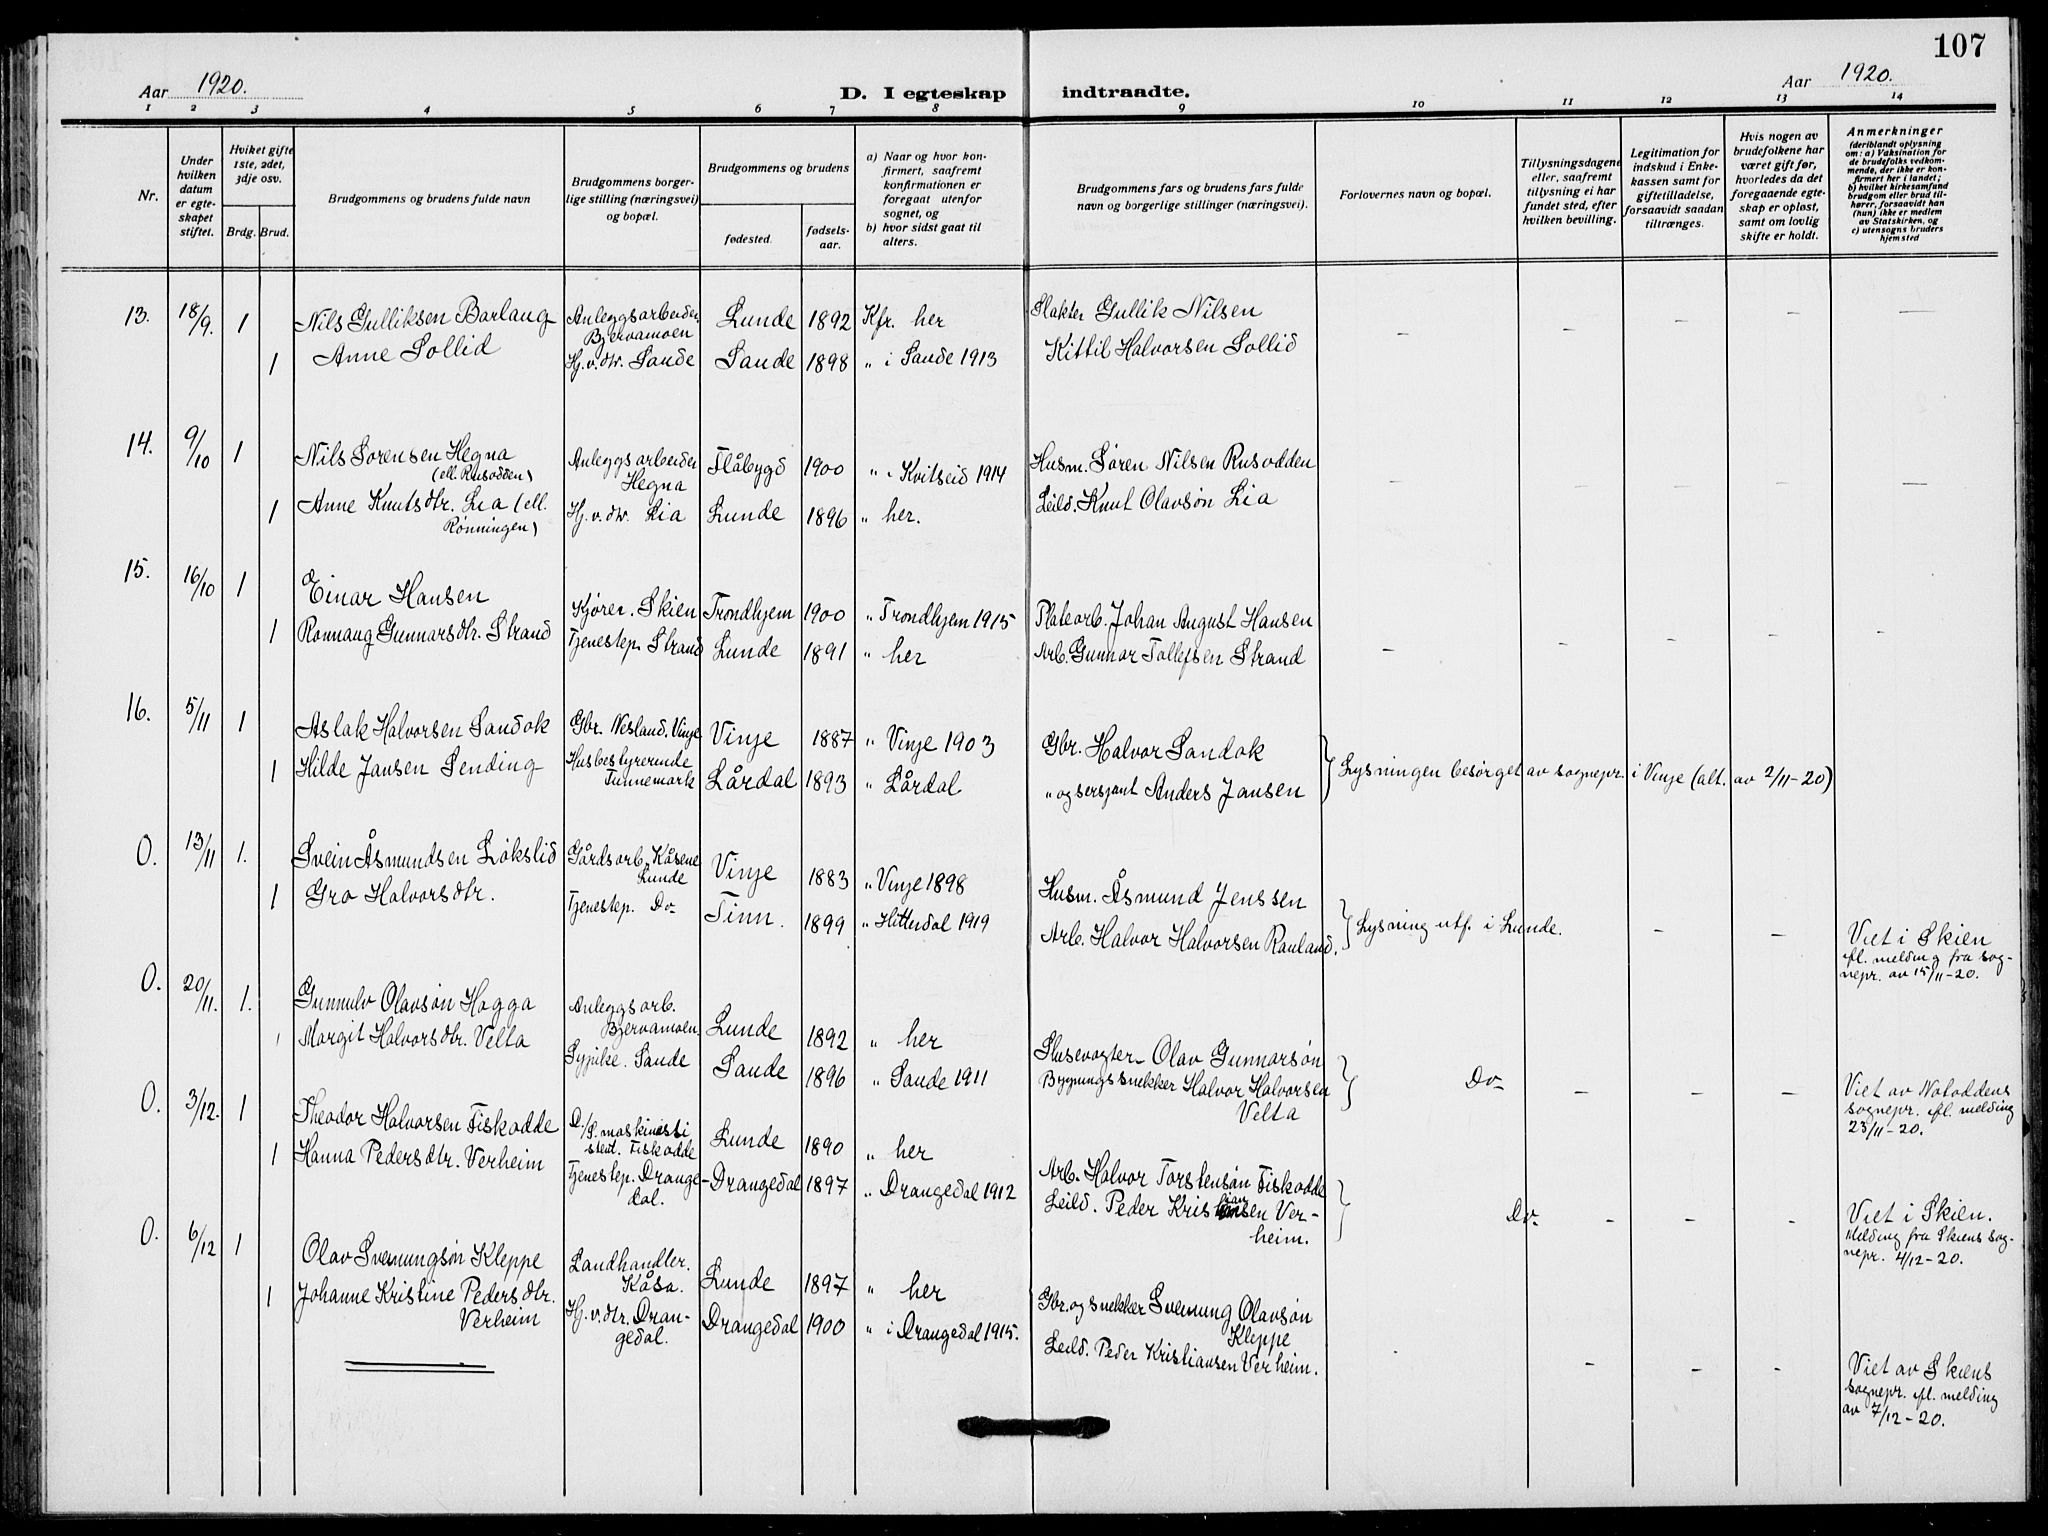 107
Aar 1920.
D. I egteskap indtraadte.
Aar 1920.
1 2 3 4 5 6 7 8 9 10 11 12 13 14
Nr.
Under hvilken datum er egte-skapet stiftet.
Hviket gifte 1ste, 2det, 3dje osv.
Brdg. Brud.
Brudgommens og brudens fulde navn
Brudgommens borger-lige stilling (næringsvei) og bopæl.
Brudgommens og brudens
fødested.
fødsels-aar.
a) Naar og hvor kon-firmert, saafremt konfirmationen er foregaat utenfor sognet, og
b) hvor sidst gaat til alters.
Brudgommens fars og brudens fars fulde navn og borgerlige stillinger (næringsvei).
Forlovernes navn og bopæl.
Tillysningsdagene eller, saafremt tillysning ei har fundet sted, efter hvilken bevilling.
Legitimation for indskud i Enke-kassen samt for giftetilladelse, forsaavidt saadan tiltrænges.
Hvis nogen av brudefolkene har været gift før, hvorledes da det foregaaende egte-skap er opløst, samt om lovlig skifte er holdt.
Anmerkninger (deriblandt oplysning om: a) Vaksination for de brudefolks vedkom-mende, der ikke er kon-firmert her i landet; b) hvilket kirkesamfund brudgom eller brud til-hører, forsaavidt han (hun) ikke er medlem av Statskirken, og c) utensogns bruders hjemsted
13. 18/9. 1 Nils Gulliksen Barlaug Anleggsarbeider Bjervamoen Lunde 1892 Kfr. her Slakter Gullik Nilsen – – – – –
1 Anne Sollid Hj.v.dtr. Sande Sande 1898 " i Sande 1913 Kittil Halvorsen Sollid
14. 9/10 1 Nils Sørensen Hegna (ell. Rusodden) Anleggsarbeider Hegna Flåbygd 1900 " Kvitseid 1914 Husm. Søren Nilsen Rusodden – – – – –
1 Anne Knutsdtr. Lia (ell. Rønningen) Hj.v.dtr. Lia Lunde 1896 " her. Leild. Knut Olavsøn Lia
15. 16/10 1 Einar Hansen Kjører. Skien Trondhjem 1900 " Trondhjem 1915 Platearb. Johan August Hansen – – – – –
1 Rønnaug Gunnarsdtr. Strand Tjenestep. Strand Lunde 1891 " her Arb. Gunnar Tollefsen Strand
16. 5/11 1 Aslak Halvorsen Sandok Gbr. Nesland. Vinje Vinje 1887 " Vinje 1903 Gbr. Halvor Sandok
1 Hilde Jansen Sending Husbestyrerinde Tunnemark Lårdal 1893 " Lårdal " og sersjant Anders Jansen } Lysningen besørget av sognepr. i Vinje (alt. av 2/11–20)
0. 13/11 1. Svein Åsmundsen Løkslid Gårdsarb. Kåsene Lunde Vinje 1883 " Vinje 1898 Husm. Åsmund Jenssen
1 Gro Halvorsdtr. Tjenestep. Do– Tinn. 1899 " Hitterdal 1919 Arb. Halvor Halvorsen Rauland. } Lysning utf. i Lunde. – – Viet i Skien
efl. melding fra sog-
nepr. av 15/11–20.
0. 20/11. 1. Gunnulv Olavsøn Hogga Anleggsarb. Bjervamoen. Lunde 1892 " her Slusevogter Olav Gunnarsøn
1 Margit Halvorsdtr. Velta Sypike. Sande Sande 1896 " Sande 1911 Bygningssnekker Halvor Halvorsen Velta } Do– – – – Viet av Notoddens
sognepr. efl. melding
23/11–20.
0. 3/12. 1 Theodor Halvorsen Fiskodde D./S. maskinassistent. Fiskodde Lunde 1890 " her Arb. Halvor Torstensøn Fiskodde
1 Hanna Pedersdtr. Verheim Tjenestep. Drangedal. Drangedal 1897 " Drangedal 1912 Leild. Peder Kristiansen Ver-heim. } Do– – – – Viet i Skien.
Melding fra Skiens sog-
nepr. 4/12–20.
0. 6/12 1 Olav Svenungsøn Kleppe Landhandler. Kåsa. Lunde 1897 " her Gbr. og snekker Svenung Olavsøn Kleppe
1 Johanne Kristine Pedersdtr. Verheim Hj.v.dtr. Dran-gedal. Drangedal 1900 " i Drangedal 1915. Leild. Peder Kristiansen Verheim. – – – Viet av Skiens
sognepr. efl. melding
av 7/12–20.